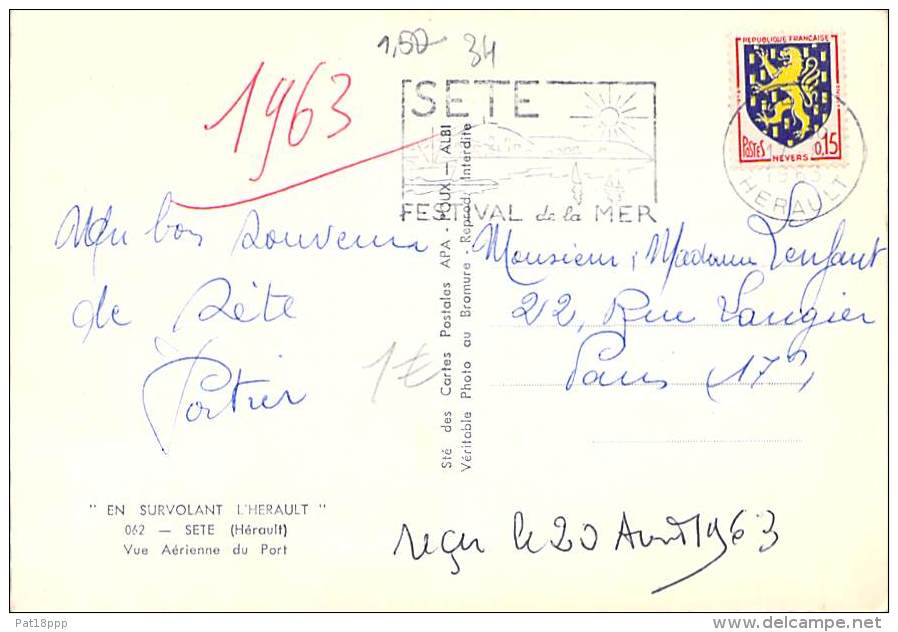 1,50 34
1963
SETE
FESTIVAL de la MER
REPUBLIQUE FRANCAISE
POSTES 0,15
NEVERS
1963
HERAULT
Un bon souvenir
de Sète
Portier
1€
Sté des Cartes Postales APA - POUX — ALBI
Véritable Photo au Bromure - Reprod. Interdite
Monsieur, Madame Lenfant
22, Rue Laugier
Paris (17e)
" EN SURVOLANT L'HERAULT "
062 — SETE (Hérault)
Vue Aérienne du Port
reçu le 20 Août 1963
Pat18ppp
www.delcampe.net